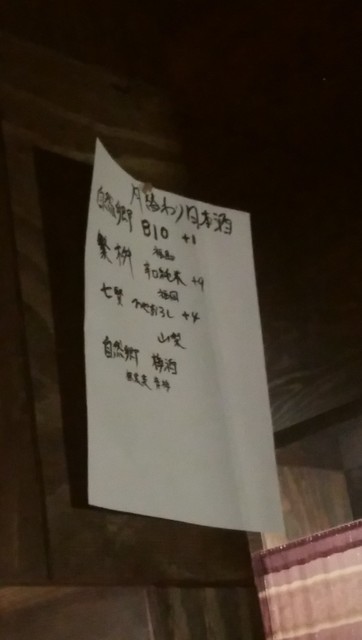 月替わり日本酒
自然郷 BIO +1
福島
繁桝 辛口純米 +9
福岡
七賢 ひやおろし +4
山梨
自然郷 梅酒